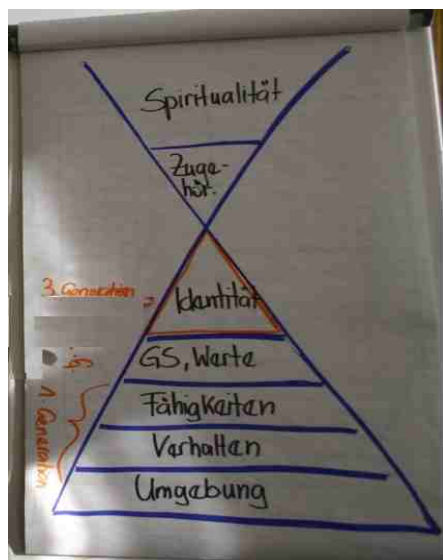 Spiritualität
Zuge-
hör.
3. Generation =
Identität
GS, Werte
Fähigkeiten
Verhalten
Umgebung
1. Generation